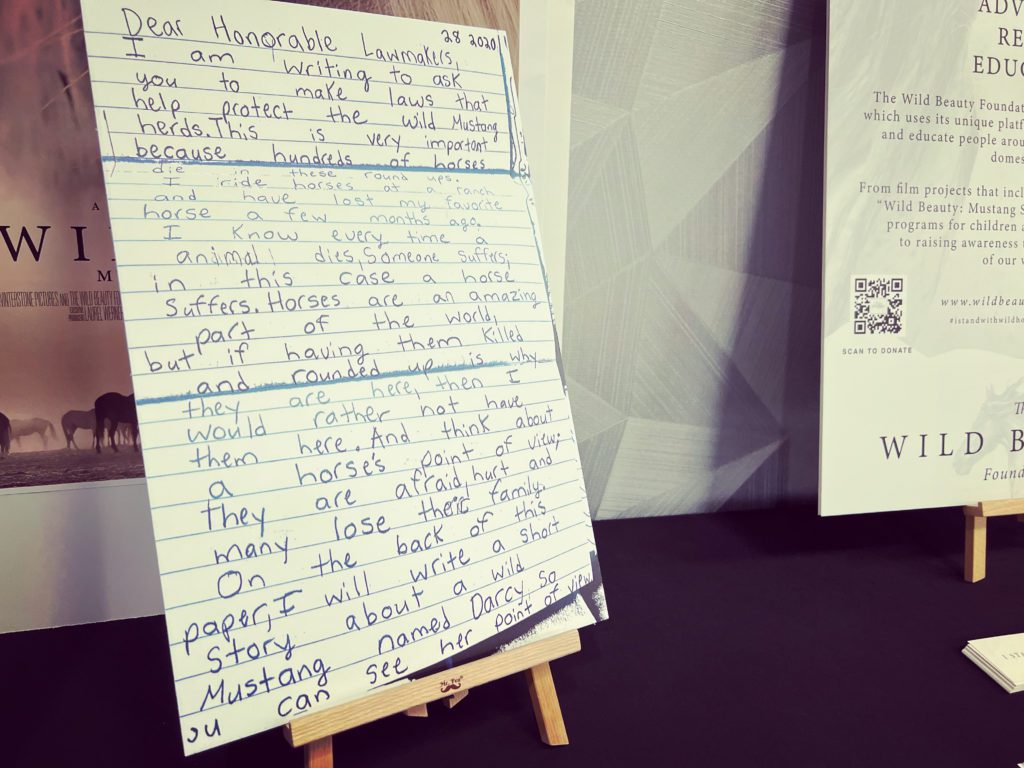 28 2020
Dear Honorable Lawmakers,
I am writing to ask
you to make laws that
help protect the wild Mustang
herds. This is very important
because hundreds of horses
die in these round ups.
I ride horses at a ranch
and have lost my favorite
horse a few months ago.
I know every time a
animal dies, Someone suffers;
in this case a horse
Suffers. Horses are an amazing
part of the world,
but if having them killed
and rounded up is why
they are here, then I
would rather not have
them here. And think about
a horse's point of view;
They are afraid, hurt and
many lose their family.
On the back of this
paper, I will write a short
Story about a wild
Mustang named Darcy. So
ou can see her point of view
Mr. Pen
A
WI
M
WINTERSTONE PICTURES AND THE WILD BEAUTY
LAUREL WERNER
ADV
RE
EDUC
The Wild Beauty Foundat
which uses its unique platf
and educate people arou
domes
From film projects that incl
"Wild Beauty: Mustang S
programs for children a
to raising awareness
of our w
www.wildbeau
#istandwithwildho
SCAN TO DONATE
Th
WILD B
Founda
I ST